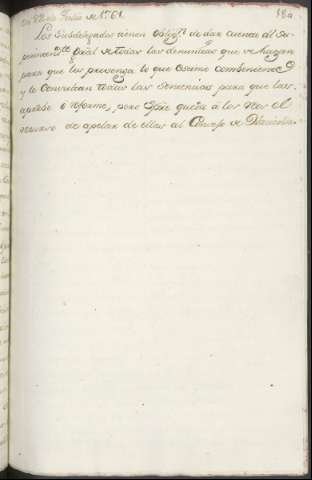 de Julio de
Los Subdelegados tienen oblig.n de dar cuenta al Su-
perintend.te Gral de todas las denuncias que se hagan
para que les prevenga lo que estime combeniente
y le Comunican todas las sentencias para que las
apruebe o reforme, pero siempre queda á los reos el
recurso de apelar de ellas al Consejo de Hacienda.